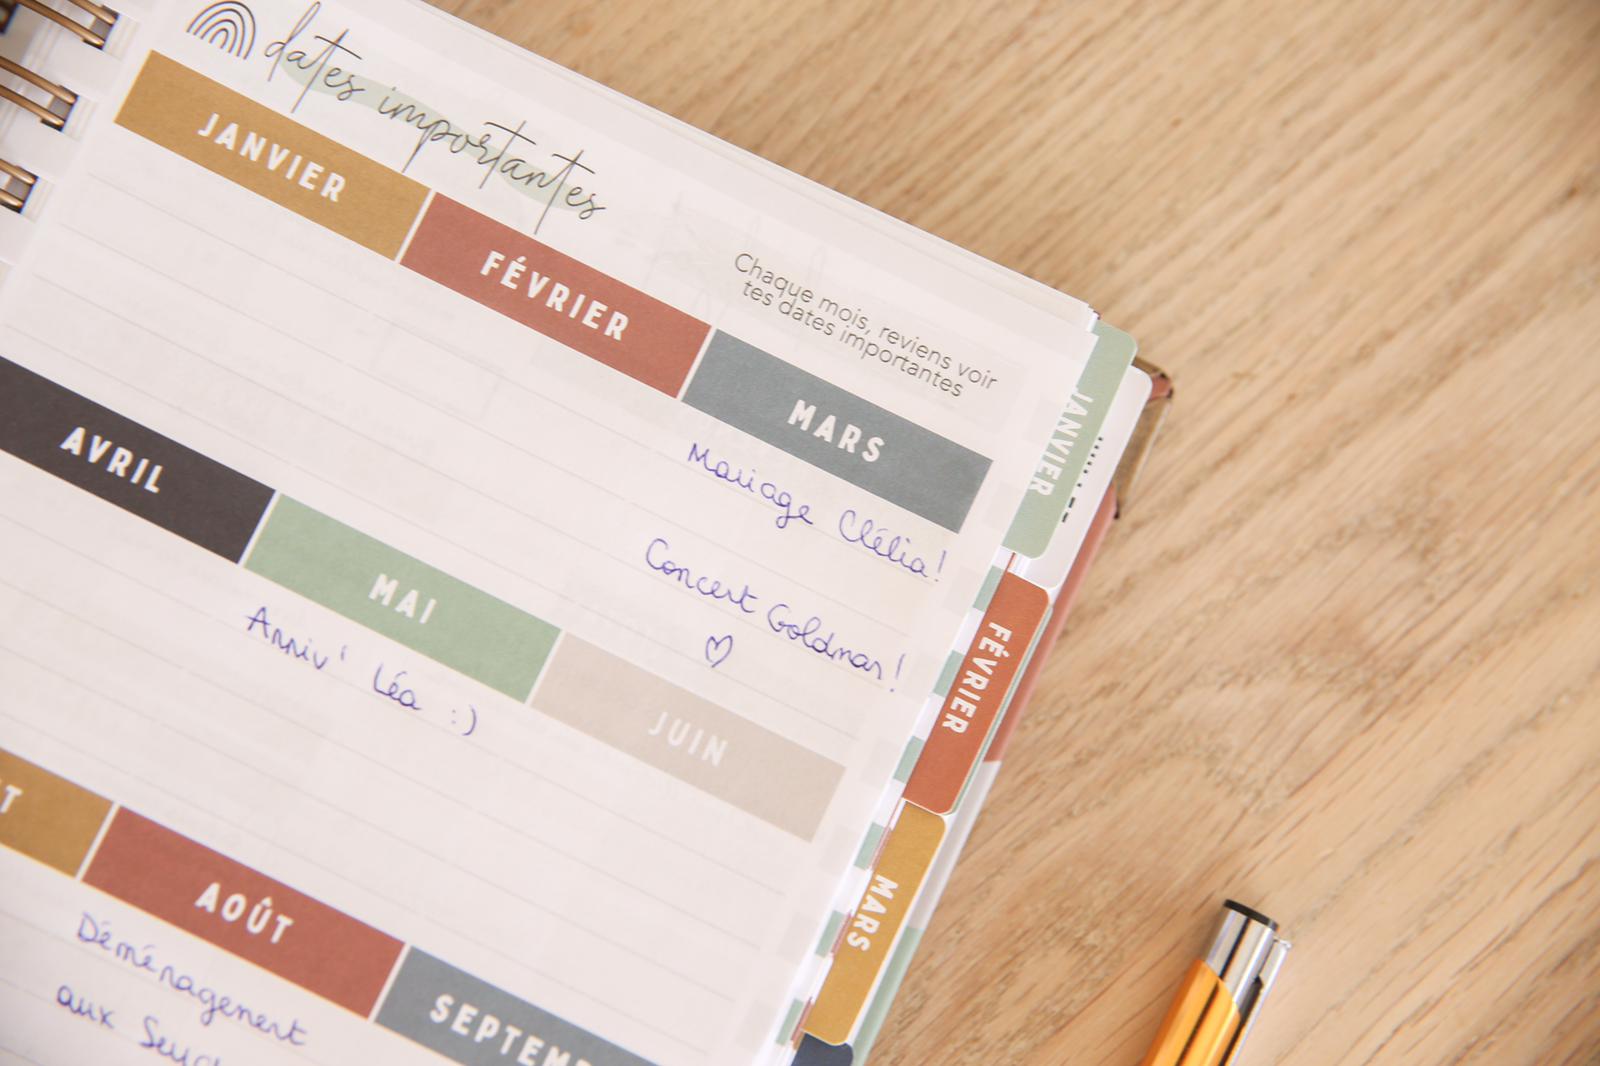 dates importantes
Chaque mois, reviens voir
tes dates importantes
JANVIER
FÉVRIER
MARS
Mariage Clélia!
Concert Goldman!
♡
AVRIL
MAI
JUIN
Anniv' Léa :)
AOÛT
Déménagement
aux
JANVIER
FÉVRIER
MARS